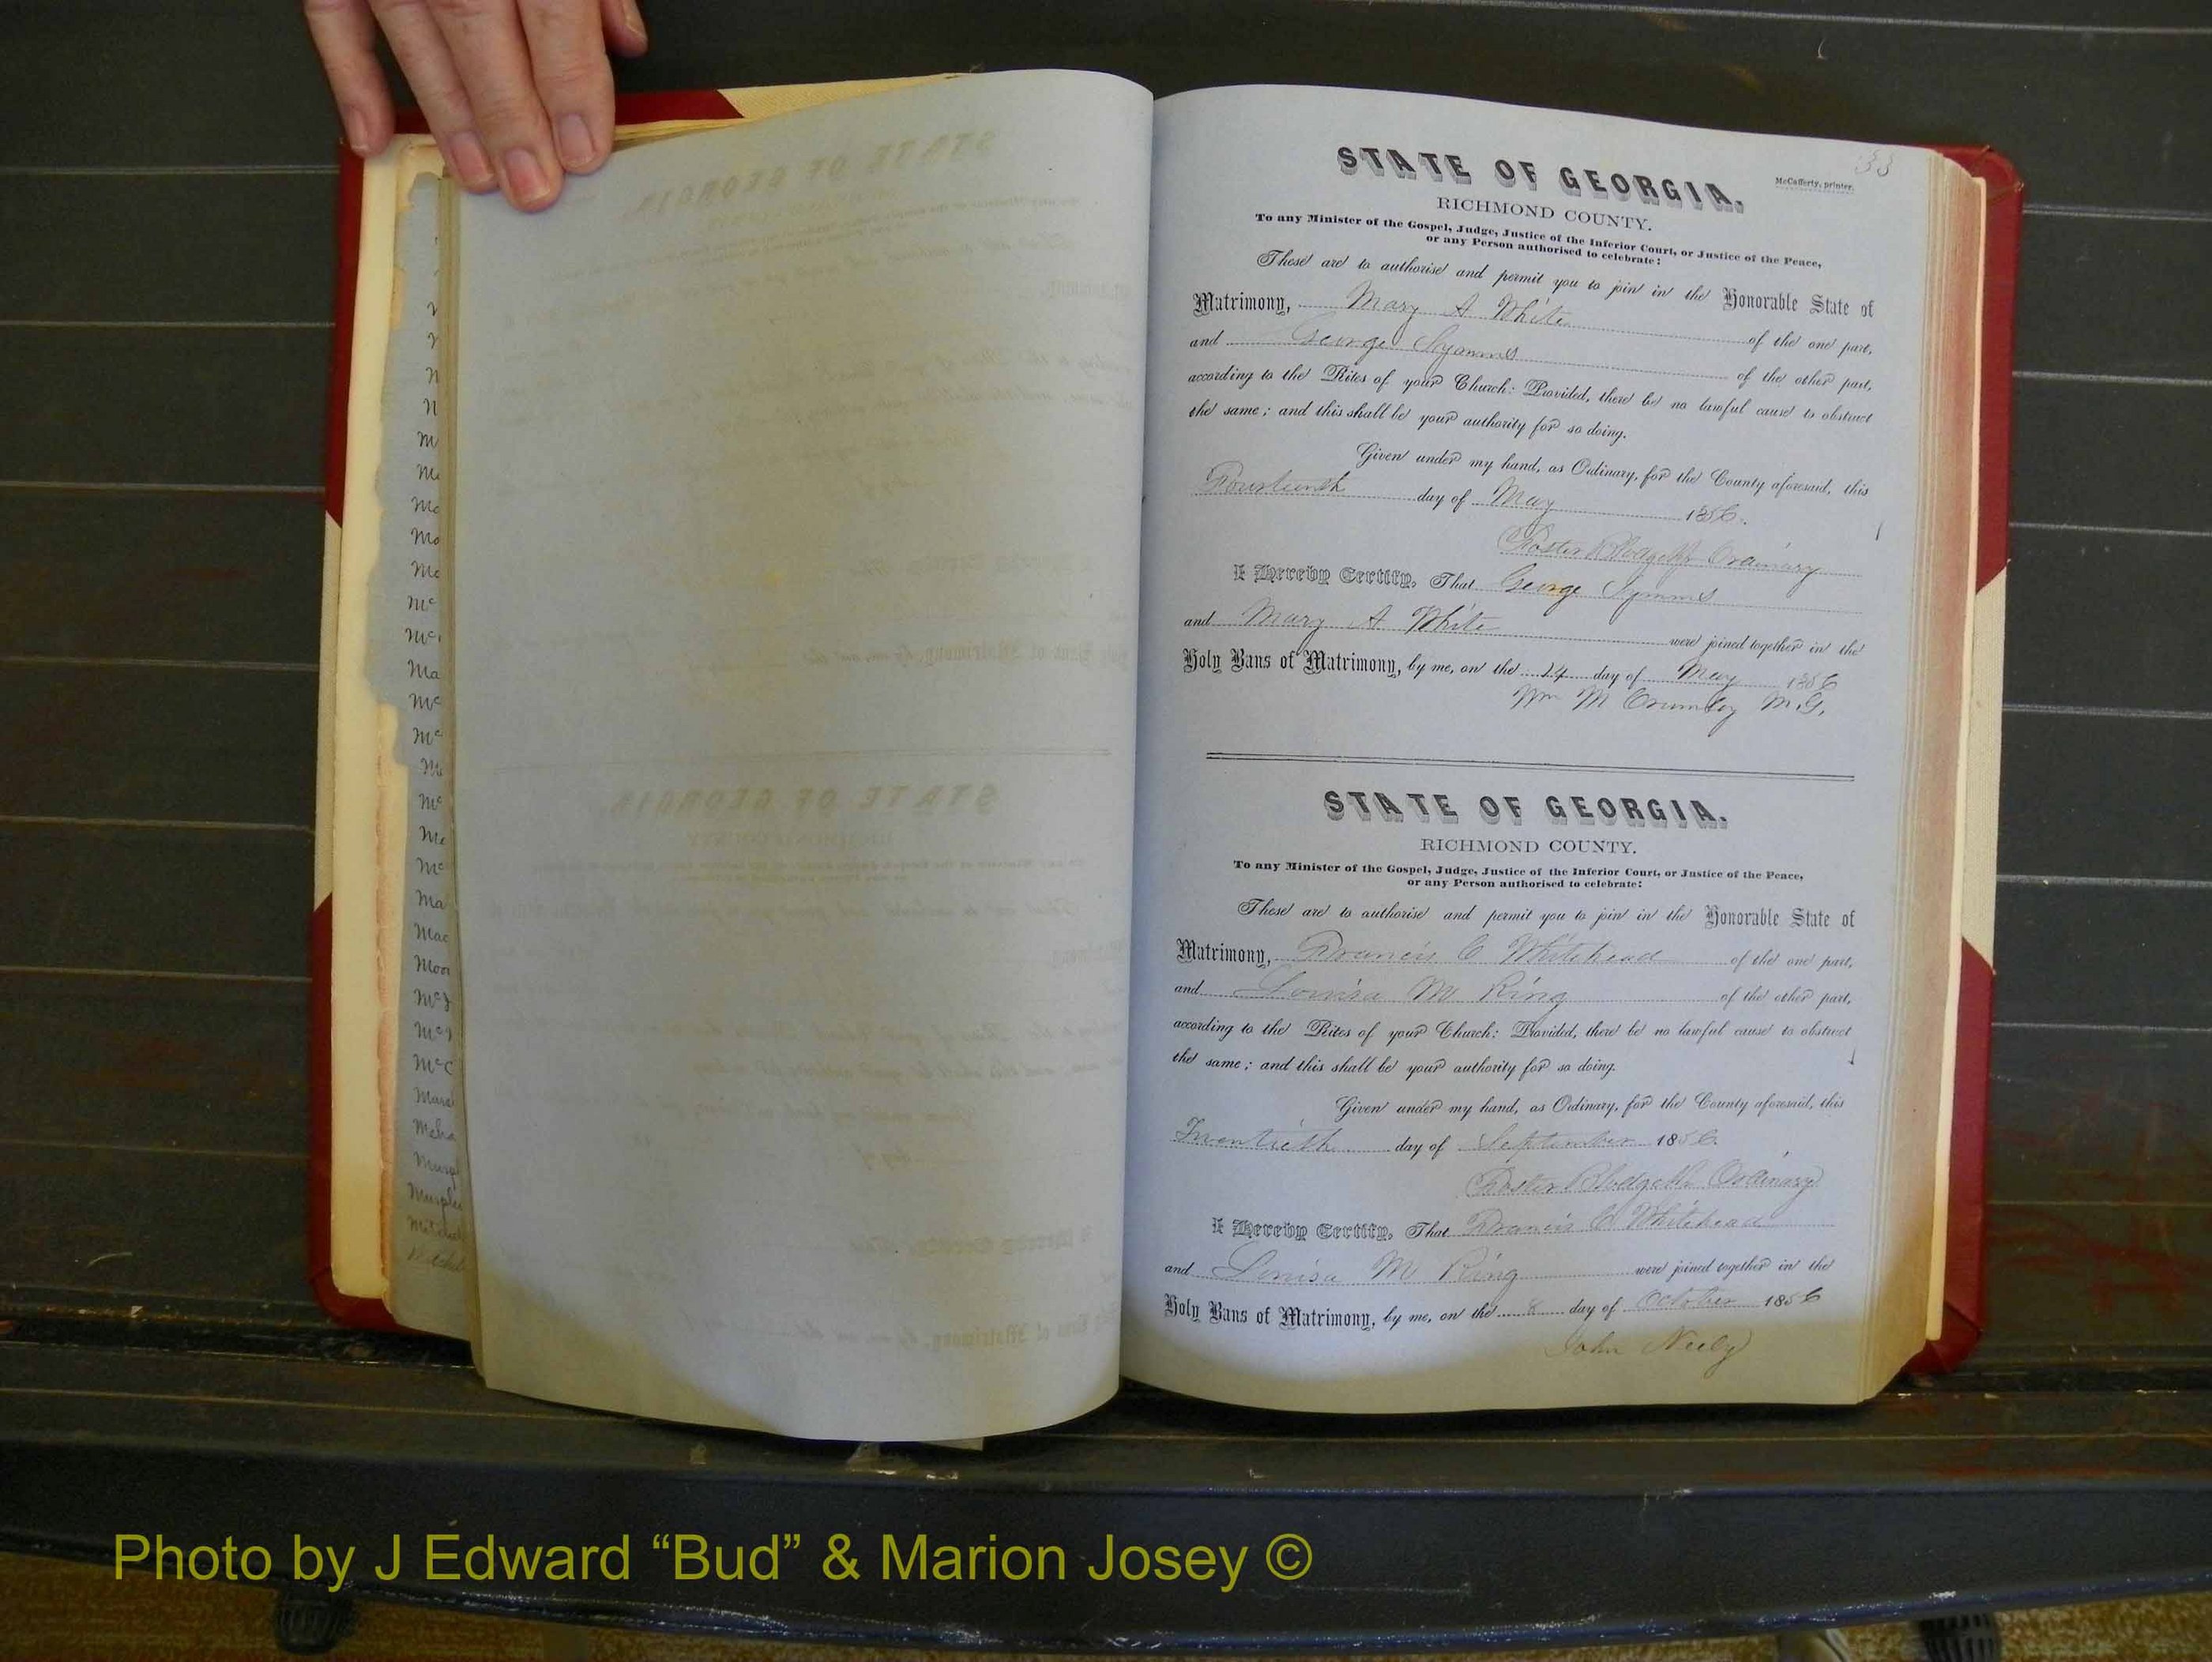 33
STATE OF GEORGIA.
McCafferty, printer.
RICHMOND COUNTY.
To any Minister of the Gospel, Judge, Justice of the Inferior Court, or Justice of the Peace,
or any Person authorised to celebrate:
These are to authorise and permit you to join in the Honorable State of
Matrimony, Mary A White of the one part,
and George Symms of the other part,
according to the Rites of your Church: Provided, there be no lawful cause to obstruct
the same; and this shall be your authority for so doing.
Given under my hand, as Ordinary, for the County aforesaid, this
Fourteenth day of May 1856.
Foster Blodgett Jr Ordinary
I Hereby Certify, That George Symms
and Mary A White were joined together in the
Holy Bans of Matrimony, by me, on the 14 day of May 1856
Wm M Crumley M.G.
STATE OF GEORGIA.
RICHMOND COUNTY.
To any Minister of the Gospel, Judge, Justice of the Inferior Court, or Justice of the Peace,
or any Person authorised to celebrate:
These are to authorise and permit you to join in the Honorable State of
Matrimony, Francis C Whitehead of the one part,
and Louisa M Ring of the other part,
according to the Rites of your Church: Provided, there be no lawful cause to obstruct
the same; and this shall be your authority for so doing.
Given under my hand, as Ordinary, for the County aforesaid, this
Twentieth day of September 1856.
Foster Blodgett Jr Ordinary
I Hereby Certify, That Francis C Whitehead
and Louisa M Ring were joined together in the
Holy Bans of Matrimony, by me, on the 8 day of October 1856
John Neely
Photo by J Edward “Bud” & Marion Josey ©